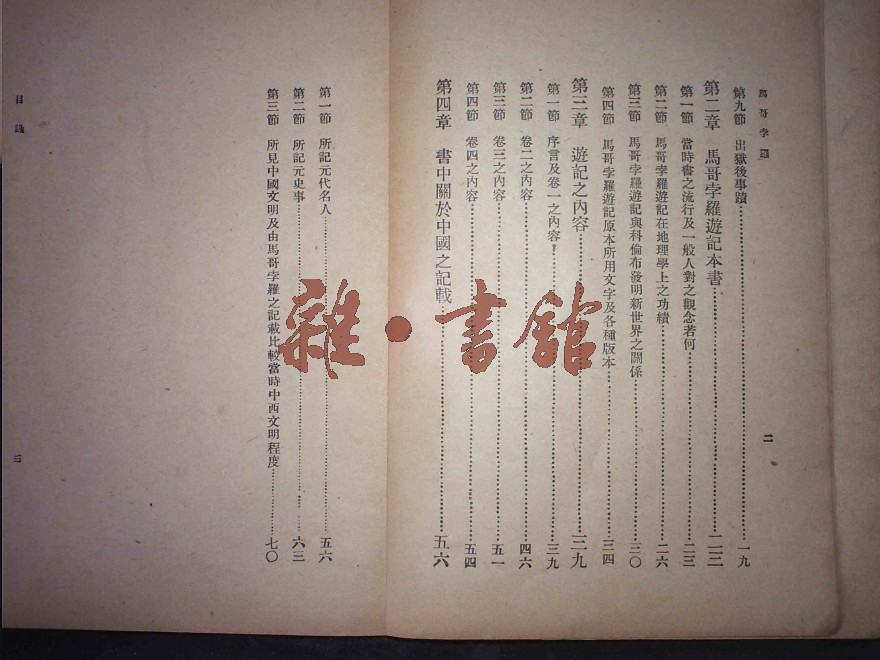 馬哥孛羅
二
第九節 出獄後事蹟 一九
第二章 馬哥孛羅遊記本書 二三
第一節 當時書之流行及一般人對之觀念若何 二三
第二節 馬哥孛羅遊記在地理學上之功績 二六
第三節 馬哥孛羅遊記與科倫布發明新世界之關係 三〇
第四節 馬哥孛羅遊記原本所用文字及各種版本 三四
第三章 遊記之內容 三九
第一節 序言及卷一之內容 三九
第二節 卷二之內容 四六
第三節 卷三之內容 五一
第四節 卷四之內容 五四
第四章 書中關於中國之記載 五六
第一節 所記元代名人 五六
第二節 所記元史事 六三
第三節 所見中國文明及由馬哥孛羅之記載比較當時中西文明程度 七〇
目錄
三
雜·書館